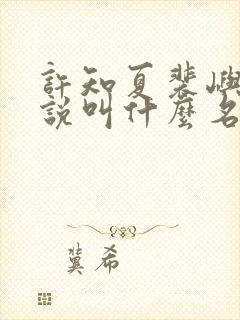 許知夏裴嶼
說叫什麼名
冀希